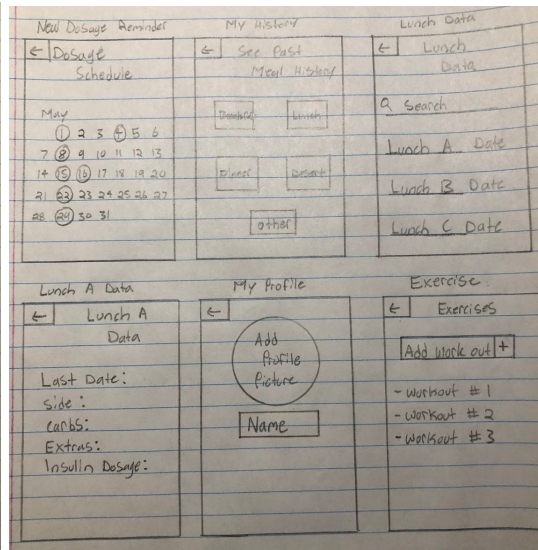 New Dosage Reminder
← Dosage
Schedule
May
1 2 3 4 5 6
7 8 9 10 11 12 13
14 15 16 17 18 19 20
21 22 23 24 25 26 27
28 29 30 31
My History
← See Past
Meal History
Breakfast Lunch
Dinner Dessert
other
Lunch Data
← Lunch
Data
Search
Lunch A Date
Lunch B Date
Lunch C Date
Lunch A Data
← Lunch A
Data
Last Date:
side:
carbs:
Extras:
Insulin Dosage:
My Profile
←
Add
Profile
Picture
Name
Exercise
← Exercises
Add work out +
- workout # 1
- workout # 2
- workout # 3